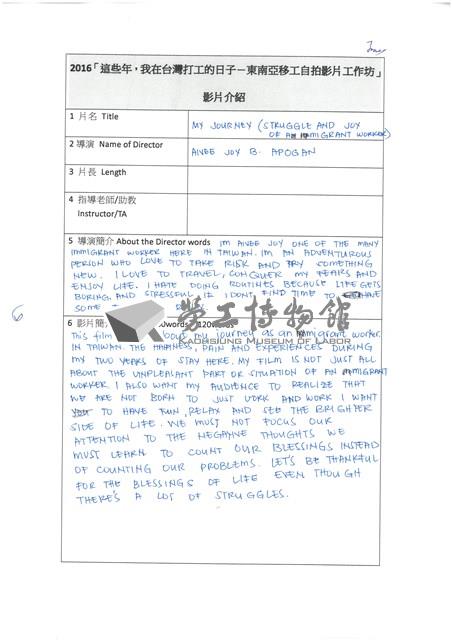 2016「這些年，我在台灣打工的日子－東南亞移工自拍影片工作坊」
影片介紹
1 片名 Title
MY JOURNEY (STRUGGLE AND JOY
OF AN IMMIGRANT WORKER)
2 導演 Name of Director
AIVEE JOY B. APOGAN
3 片長 Length
4 指導老師/助教
Instructor/TA
5 導演簡介 About the Director words IM AIVEE JOY ONE OF THE MANY
IMMIGRANT WORKER HERE IN TAIWAN. IM AN ADVENTUROUS
PERSON WHO LOVE TO TAKE RISK AND TRY SOMETHING
NEW. I LOVE TO TRAVEL, CONQUER MY FEARS AND
ENJOY LIFE. I HATE DOING ROUTINES BECAUSE LIFE GETS
BORING AND STRESSFUL IF I DONT FIND TIME TO HAVE
SOME
6 影片簡 words
勞工博物館
KAOHSIUNG MUSEUM OF LABOR
This film my journey as an immigrant worker
IN TAIWAN. THE HAPINESS, PAIN AND EXPERIENCES DURING
MY TWO YEARS OF STAY HERE. MY FILM IS NOT JUST ALL
ABOUT THE UNPLEASANT PART OR SITUATION OF AN IMMIGRANT
WORKER. I ALSO WANT MY AUDIENCE TO REALIZE THAT
WE ARE NOT BORN TO JUST WORK AND WORK I WANT
TO HAVE FUN, RELAX AND SEE THE BRIGHTER
SIDE OF LIFE. WE MUST NOT FOCUS OUR
ATTENTION TO THE NEGATIVE THOUGHTS WE
MUST LEARN TO COUNT OUR BLESSINGS INSTEAD
OF COUNTING OUR PROBLEMS. LET'S BE THANKFUL
FOR THE BLESSINGS OF LIFE EVEN THOUGH
THERE'S A LOT OF STRUGGLES.